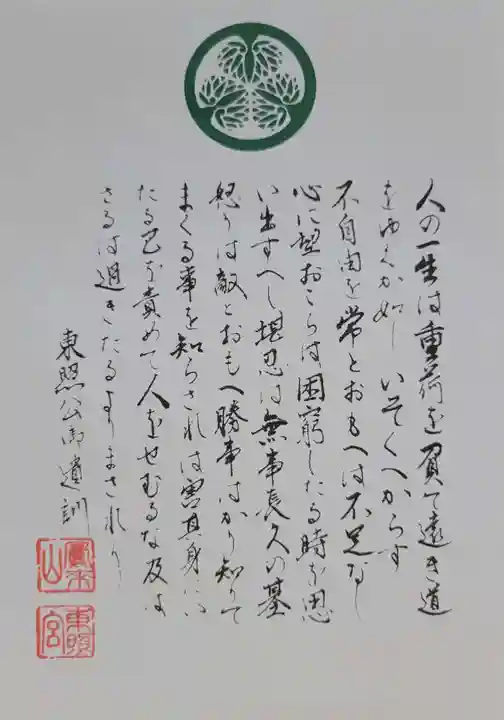 人の一生は重荷を負て遠き道
をゆくか如し いそくへからす
不自由を常とおもへは不足なし
心に望おこらは困窮したる時を思
い出すへし堪忍は無事長久の基
怒りは敵とおもへ勝事はかり知りて
まくる事を知らされは害其身にい
たる己を責めて人をせむるな及は
さるは過きたるよりまされり
東照公御遺訓
鳳来山
東照宮